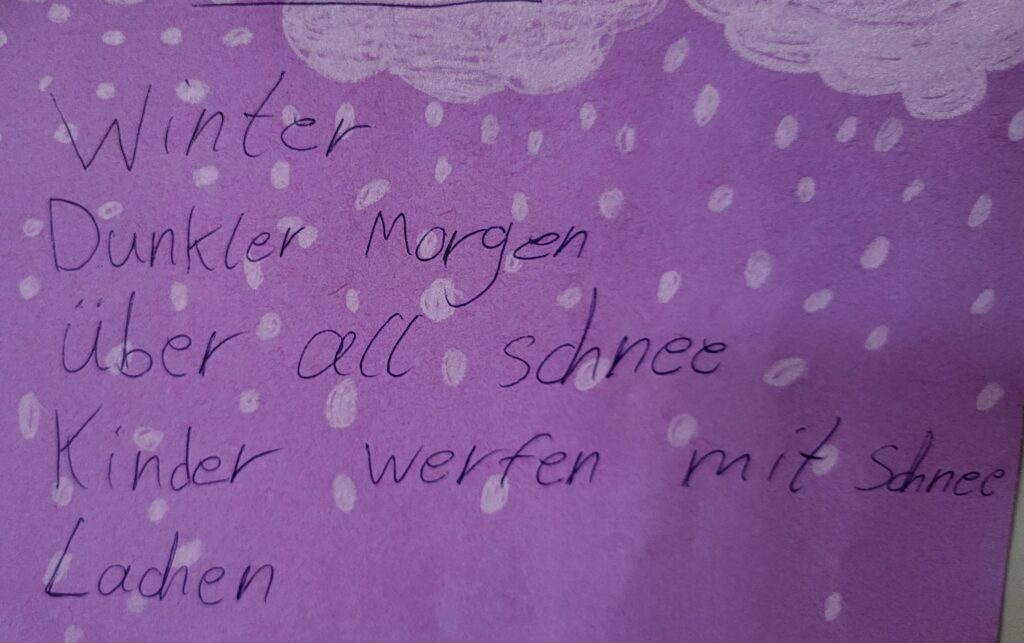 Winter
Dunkler Morgen
über all schnee
Kinder werfen mit Schnee
Lachen